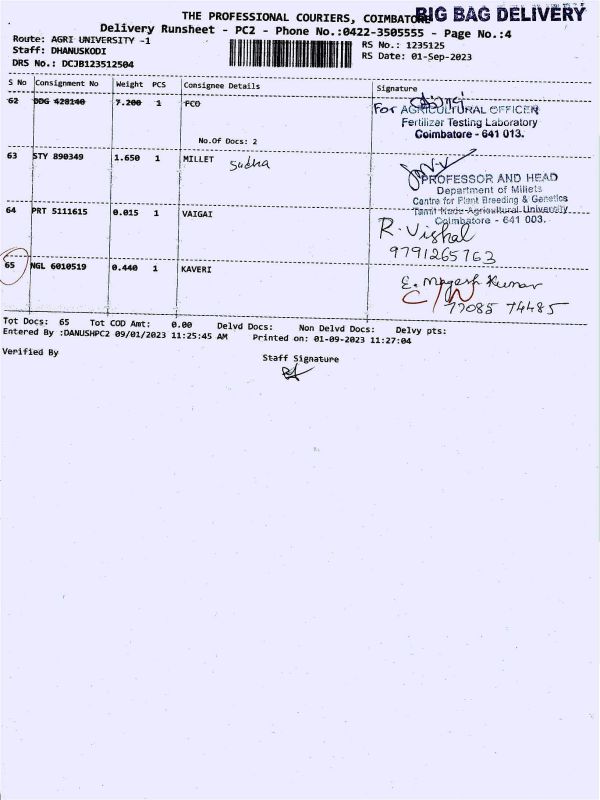 THE PROFESSIONAL COURIERS, COIMBATORE
BIG BAG DELIVERY
Delivery Runsheet - PC2 - Phone No.:0422-3505555 - Page No.:4
Route: AGRI UNIVERSITY -1
Staff: DHANUSKODI
DRS No.: DCJB123512504
RS No.: 1235125
RS Date: 01-Sep-2023
S No Consignment No Weight PCS Consignee Details Signature
62 DDG 428140 7.200 1 FCO
No.Of Docs: 2
For AGRICULTURAL OFFICER
Fertilizer Testing Laboratory
Coimbatore - 641 013.
63 STY 890349 1.650 1 MILLET Sudha
PROFESSOR AND HEAD
Department of Millets
Centre for Plant Breeding & Genetics
Tamil Nadu Agricultural University
Coimbatore - 641 003.
64 PRT 5111615 0.015 1 VAIGAI
R. Vishal
9791265763
65 NGL 6010519 0.440 1 KAVERI
E. Magesh Kumar
C/W
77085 74485
Tot Docs: 65 Tot COD Amt: 0.00 Delvd Docs: Non Delvd Docs: Delvy pts:
Entered By :DANUSHPC2 09/01/2023 11:25:45 AM Printed on: 01-09-2023 11:27:04
Verified By
Staff Signature